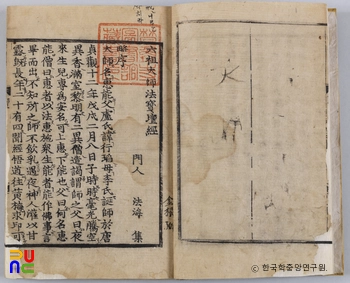 六祖大師法寶壇經
門人 法海 集
略序
大師名惠能父盧氏諱行瑫母李氏誕師於唐
貞觀十二年戊戌二月八日子時時毫光騰空
異香滿室黎明有二異僧造謁謂師之父曰夜
來生兒專爲安名可上惠下能也父曰何名惠
能僧曰惠者以法惠施衆生能者能作佛事言
畢而出不知所之師不飲乳遇夜神人灌以甘
露旣長年二十有四聞經悟道往黃梅求印可
ⓒ 한국학중앙연구원.